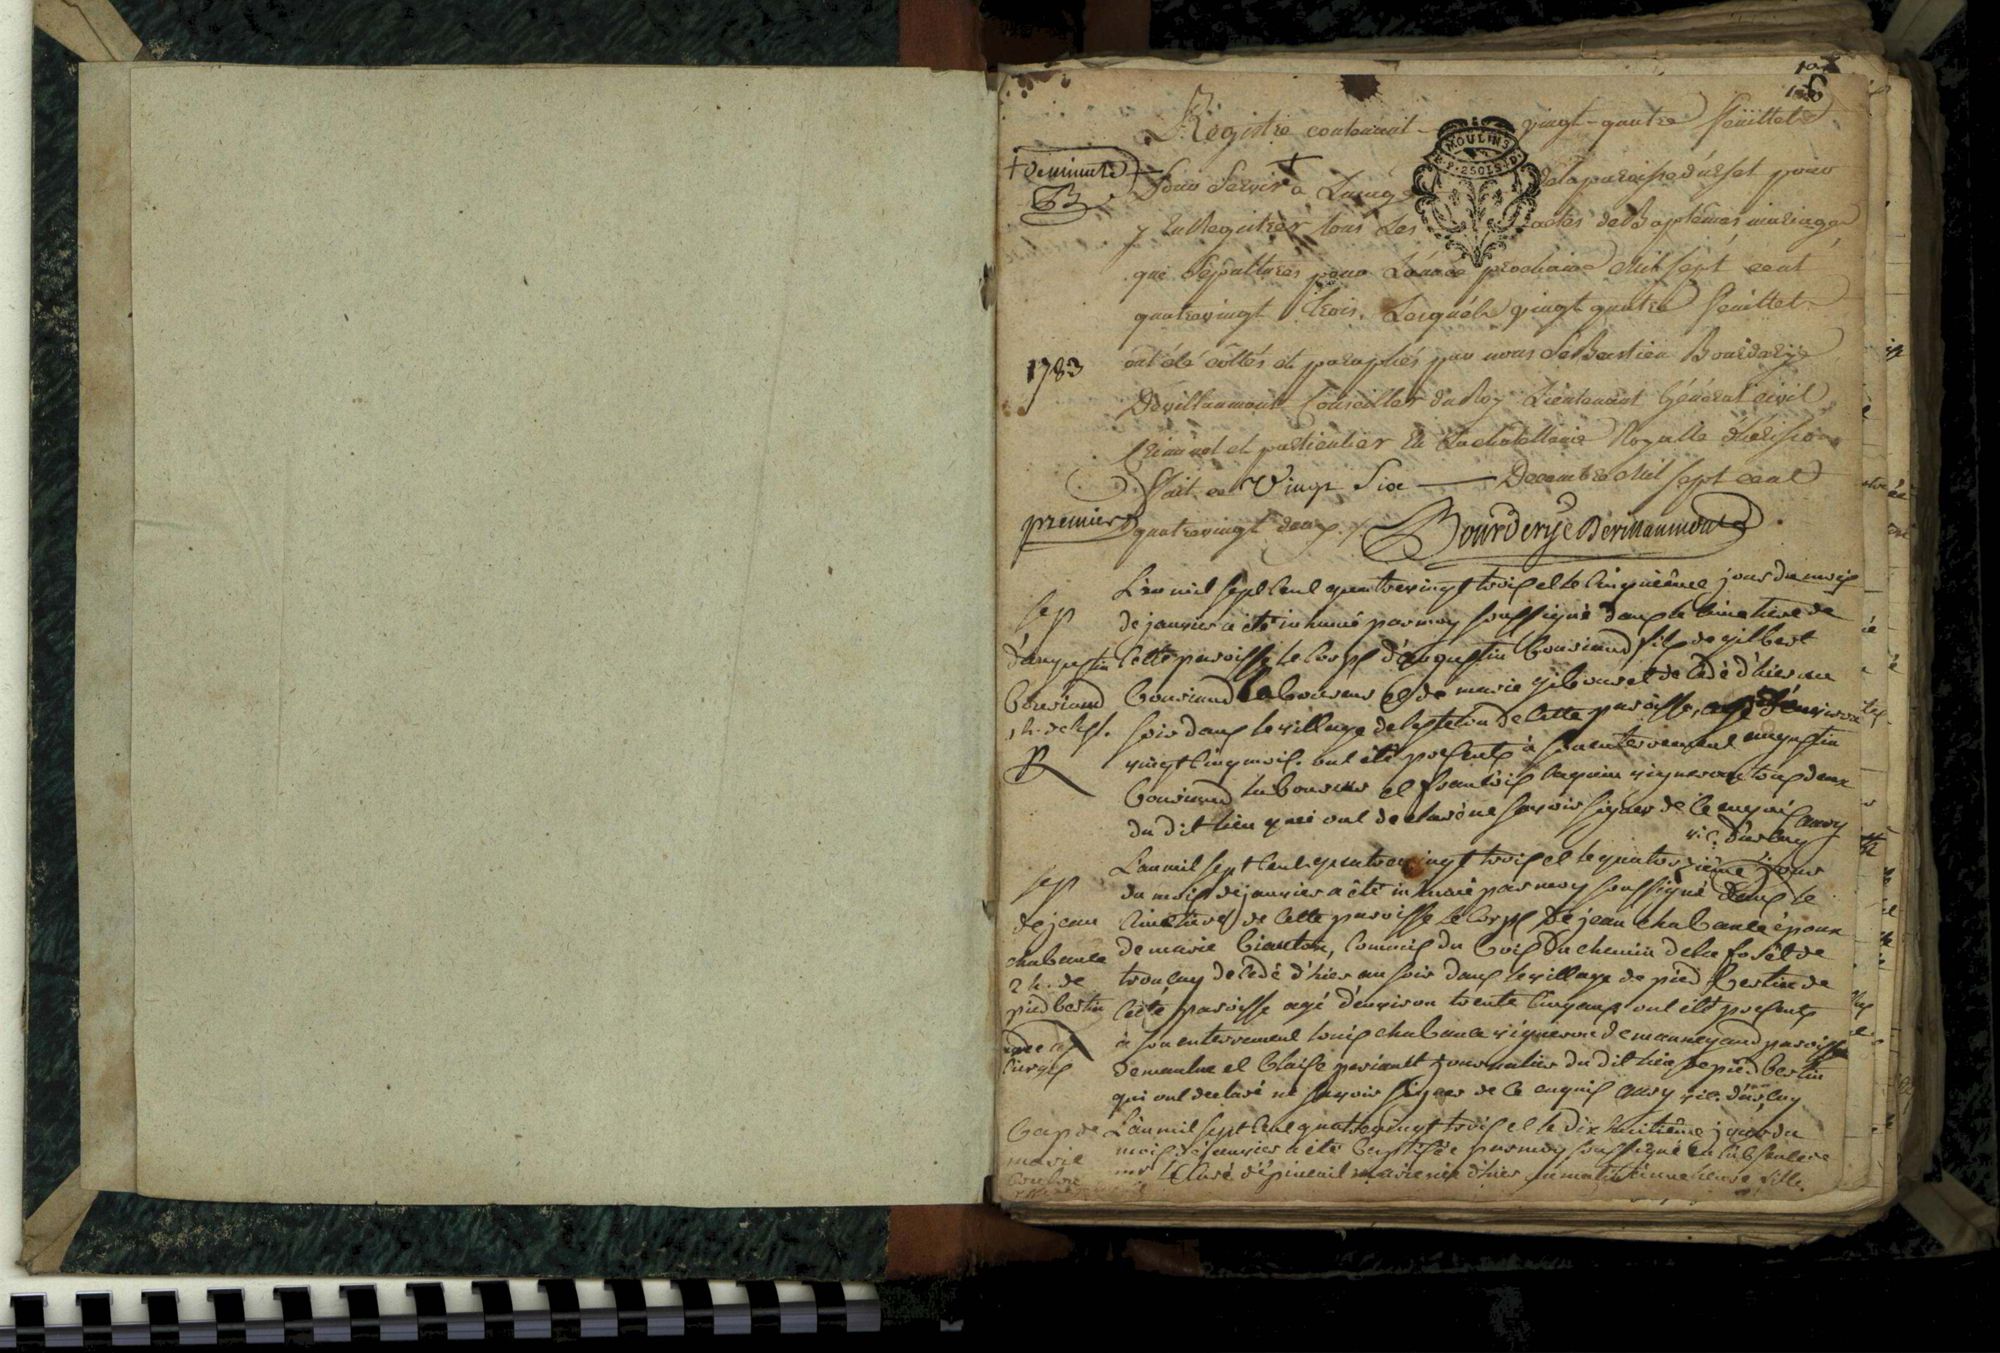 Registre contenant vingt-quatre feuillets
MOULINS
+ de minutte +
pour servir a Lusage de la paroisse d'urset pour
y Enregistrer tous Les actes de Baptêmes mariage
que Sepultures pour L'année prochaine Mil sept cent
quatrevingt trois. Lesquels vingt quatre feuillets
1783
ont été côttés et paraphés par nous Sebastien Bourderÿe
Devillaumont Conseiller du Roy Lieutenant Général civil
Criminel et particulier En La chatellenie Royalle d'herisson
Fait ce Vingt Six Decembre Mil sept cent
premier
quatrevingt deux ./.
Bourderÿe Devillaumont
L'an mil sept cent quatrevingt trois et le cinquième jour du mois
sep
de janvier a été inhumé par moy soussigné dans le cimetiere de
d'augustin
cette paroisse le corps d'augustin bouriaud fils de gilbert
bouriaud
bouriaud laboureur et de marie decedé d'hier au
soir dans le village de cette paroisse, agé d'environ
vingt cinq mois. ont été presents à son enterrement augustin
bouriaud laboureur et francois vigneron tous deux
du dit lieu qui ont declaré ne savoir signer de ce enquis
vic. d'urcay
L'an mil sept cent quatrevingt trois et le quatorzième jour
sep
du mois de janvier a été inhumé par moy soussigné dans le
de jean
cimetière de cette paroisse le corps de jean chabance époux
chabance
de marie commis du bois du chemin de la forêt de
2 h. de
troncay decedé d'hier au soir dans le village de pied bertin de
pied bertin
cette paroisse agé d'environ trente cinq ans ont été presents
à son enterrement louis chabance vigneron de paroisse
de et blaise periault journalier du dit lieu de pied bertin
qui ont declaré ne savoir signer de ce enquis vic. d'urcay
bap de
L'an mil sept cent quatrevingt trois et le dix huitième jour du
marie
mois de janvier a été baptisée par moy soussigné en l'absence de
mr le Curé d'épineuil marie née d'hier au matin à heure fille